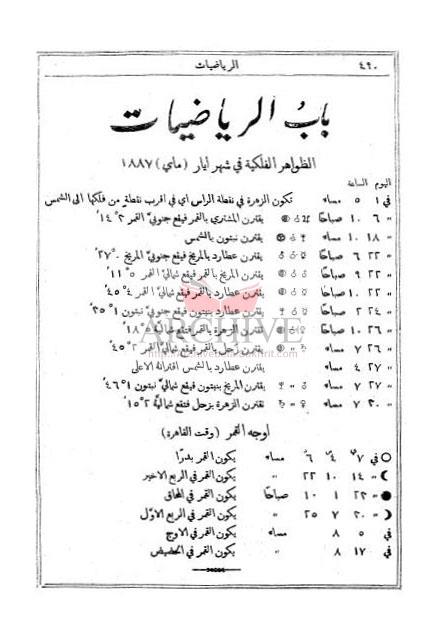 ٤٩٠ الرياضيات
باب الرياضيات
الظواهر الفلكية في شهر ايار (ماي) ١٨٨٧
اليوم الساعة
في ١ ٥ مساء تكون الزهرة في نقطة الراس اي في اقرب نقطة من فلكها الى الشمس
" ٦ ١٠ صباحا يقترن المشتري بالقمر فيقع جنوبيّ القمر ٢° ١٤'
" ١٨ ١٠ مساء يقترن نبتون بالشمس
" ٢٢ ٦ صباحا يقترن عطارد بالمريخ فيقع جنوبي المريخ ٠° ٢٧'
" ٢٢ ٩ صباحا يقترن المريخ بالقمر فيقع شماليّ القمر ٥° ١١'
" ٢٢ ١٠ صباحا يقترن عطارد بالقمر فيقع شمالي القمر ٤° ٤٥'
" ٢٤ ٢ صباحا يقترن عطارد بنبتون فيقع جنوبي نبتون ١° ٣٥'
" ٢٦ ١٠ صباحا يقترن الزهرة بالقمر فتقع شماليه ١٨'
" ٢٦ ٧ مساء يقترن زحل بالقمر فيقع شمالي القمر ٢° ٤٥'
" ٢٧ ٤ مساء يقترن عطارد بالشمس اقترانهُ الاعلى
" ٢٧ ٧ مساء يقترن المريخ بنبتون فيقع شماليّ نبتون ١° ٤٦'
" ٣٠ ٧ مساء تقترن الزهرة بزحل فتقع شماليهُ ٢° ١٥'
اوجه القمر (وقت القاهرة)
في ٧ ٤ ٦ مساء يكون القمر بدرًا
" ١٤ ١٠ ٢٢ " يكون القمر في الربع الاخير
" ٢٣ ١ ١٠ صباحًا يكون القمر في المحاق
" ٣٠ ٧ ٢٥ " يكون القمر في الربع الاوّل
في ٥ ٨ مساء يكون القمر في الاوج
في ١٧ ٨ " يكون القمر في الحضيض
ARCHIVE